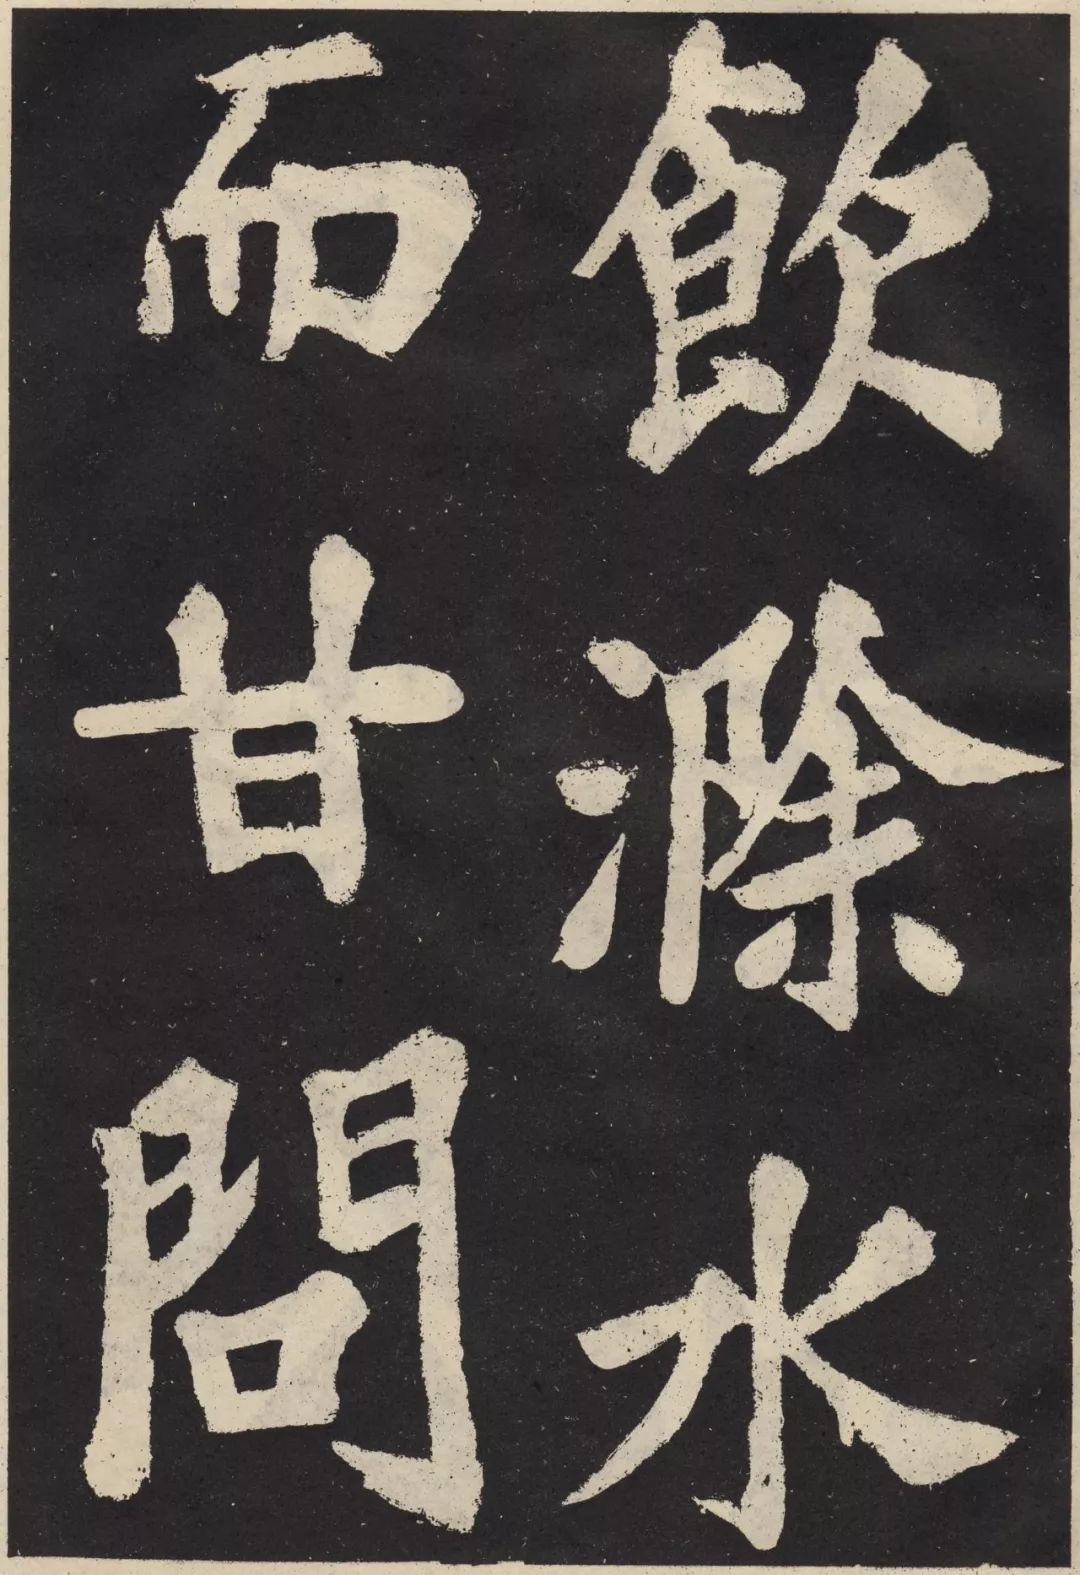 飲滁水
而甘問